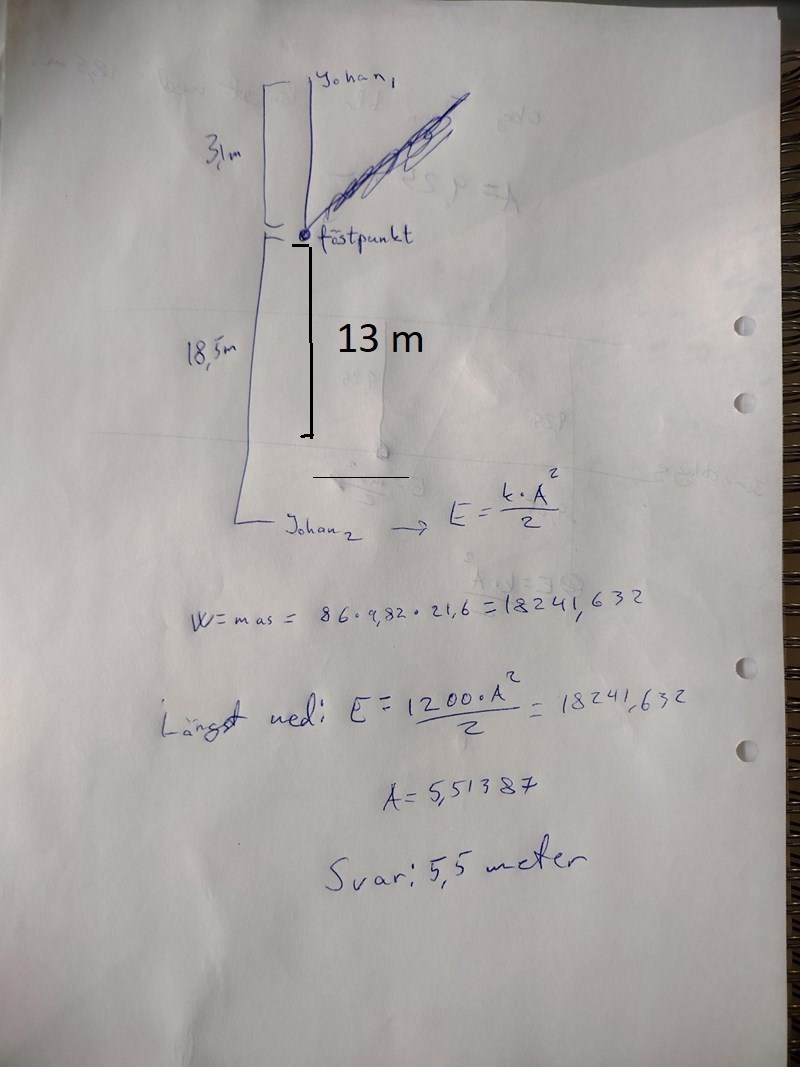 Johan₁
3,1m
fästpunkt
13 m
18,5m
Johan₂ → E = k·A² / 2
W = mas = 86·9,82·21,6 = 18241,632
Längst ned: E = 1200·A² / 2 = 18241,632
A = 5,51387
Svar: 5,5 meter